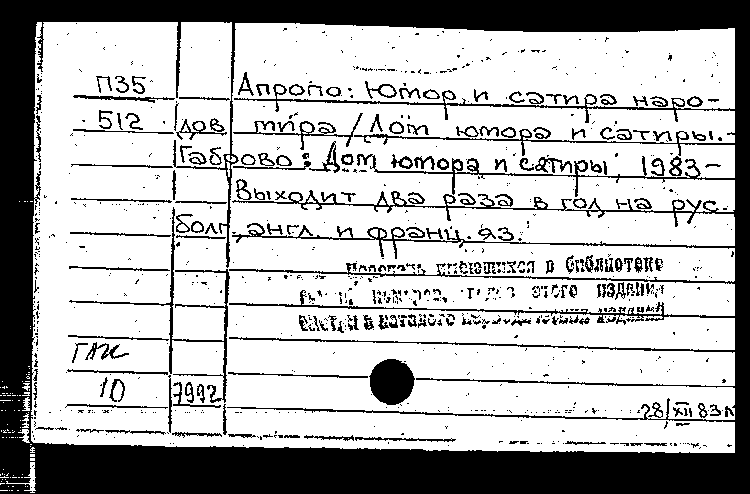 П35 Апропо: Юмор и сатира наро-
512 дов мира / Дом юмора и сатиры.-
Габрово : Дом юмора и сатиры, 1983-
Выходит два раза в год на рус.
болг., англ. и франц. яз.
имеющихся в библиотеке
этого издания
в каталоге изданий
10 7992
28/XII 83